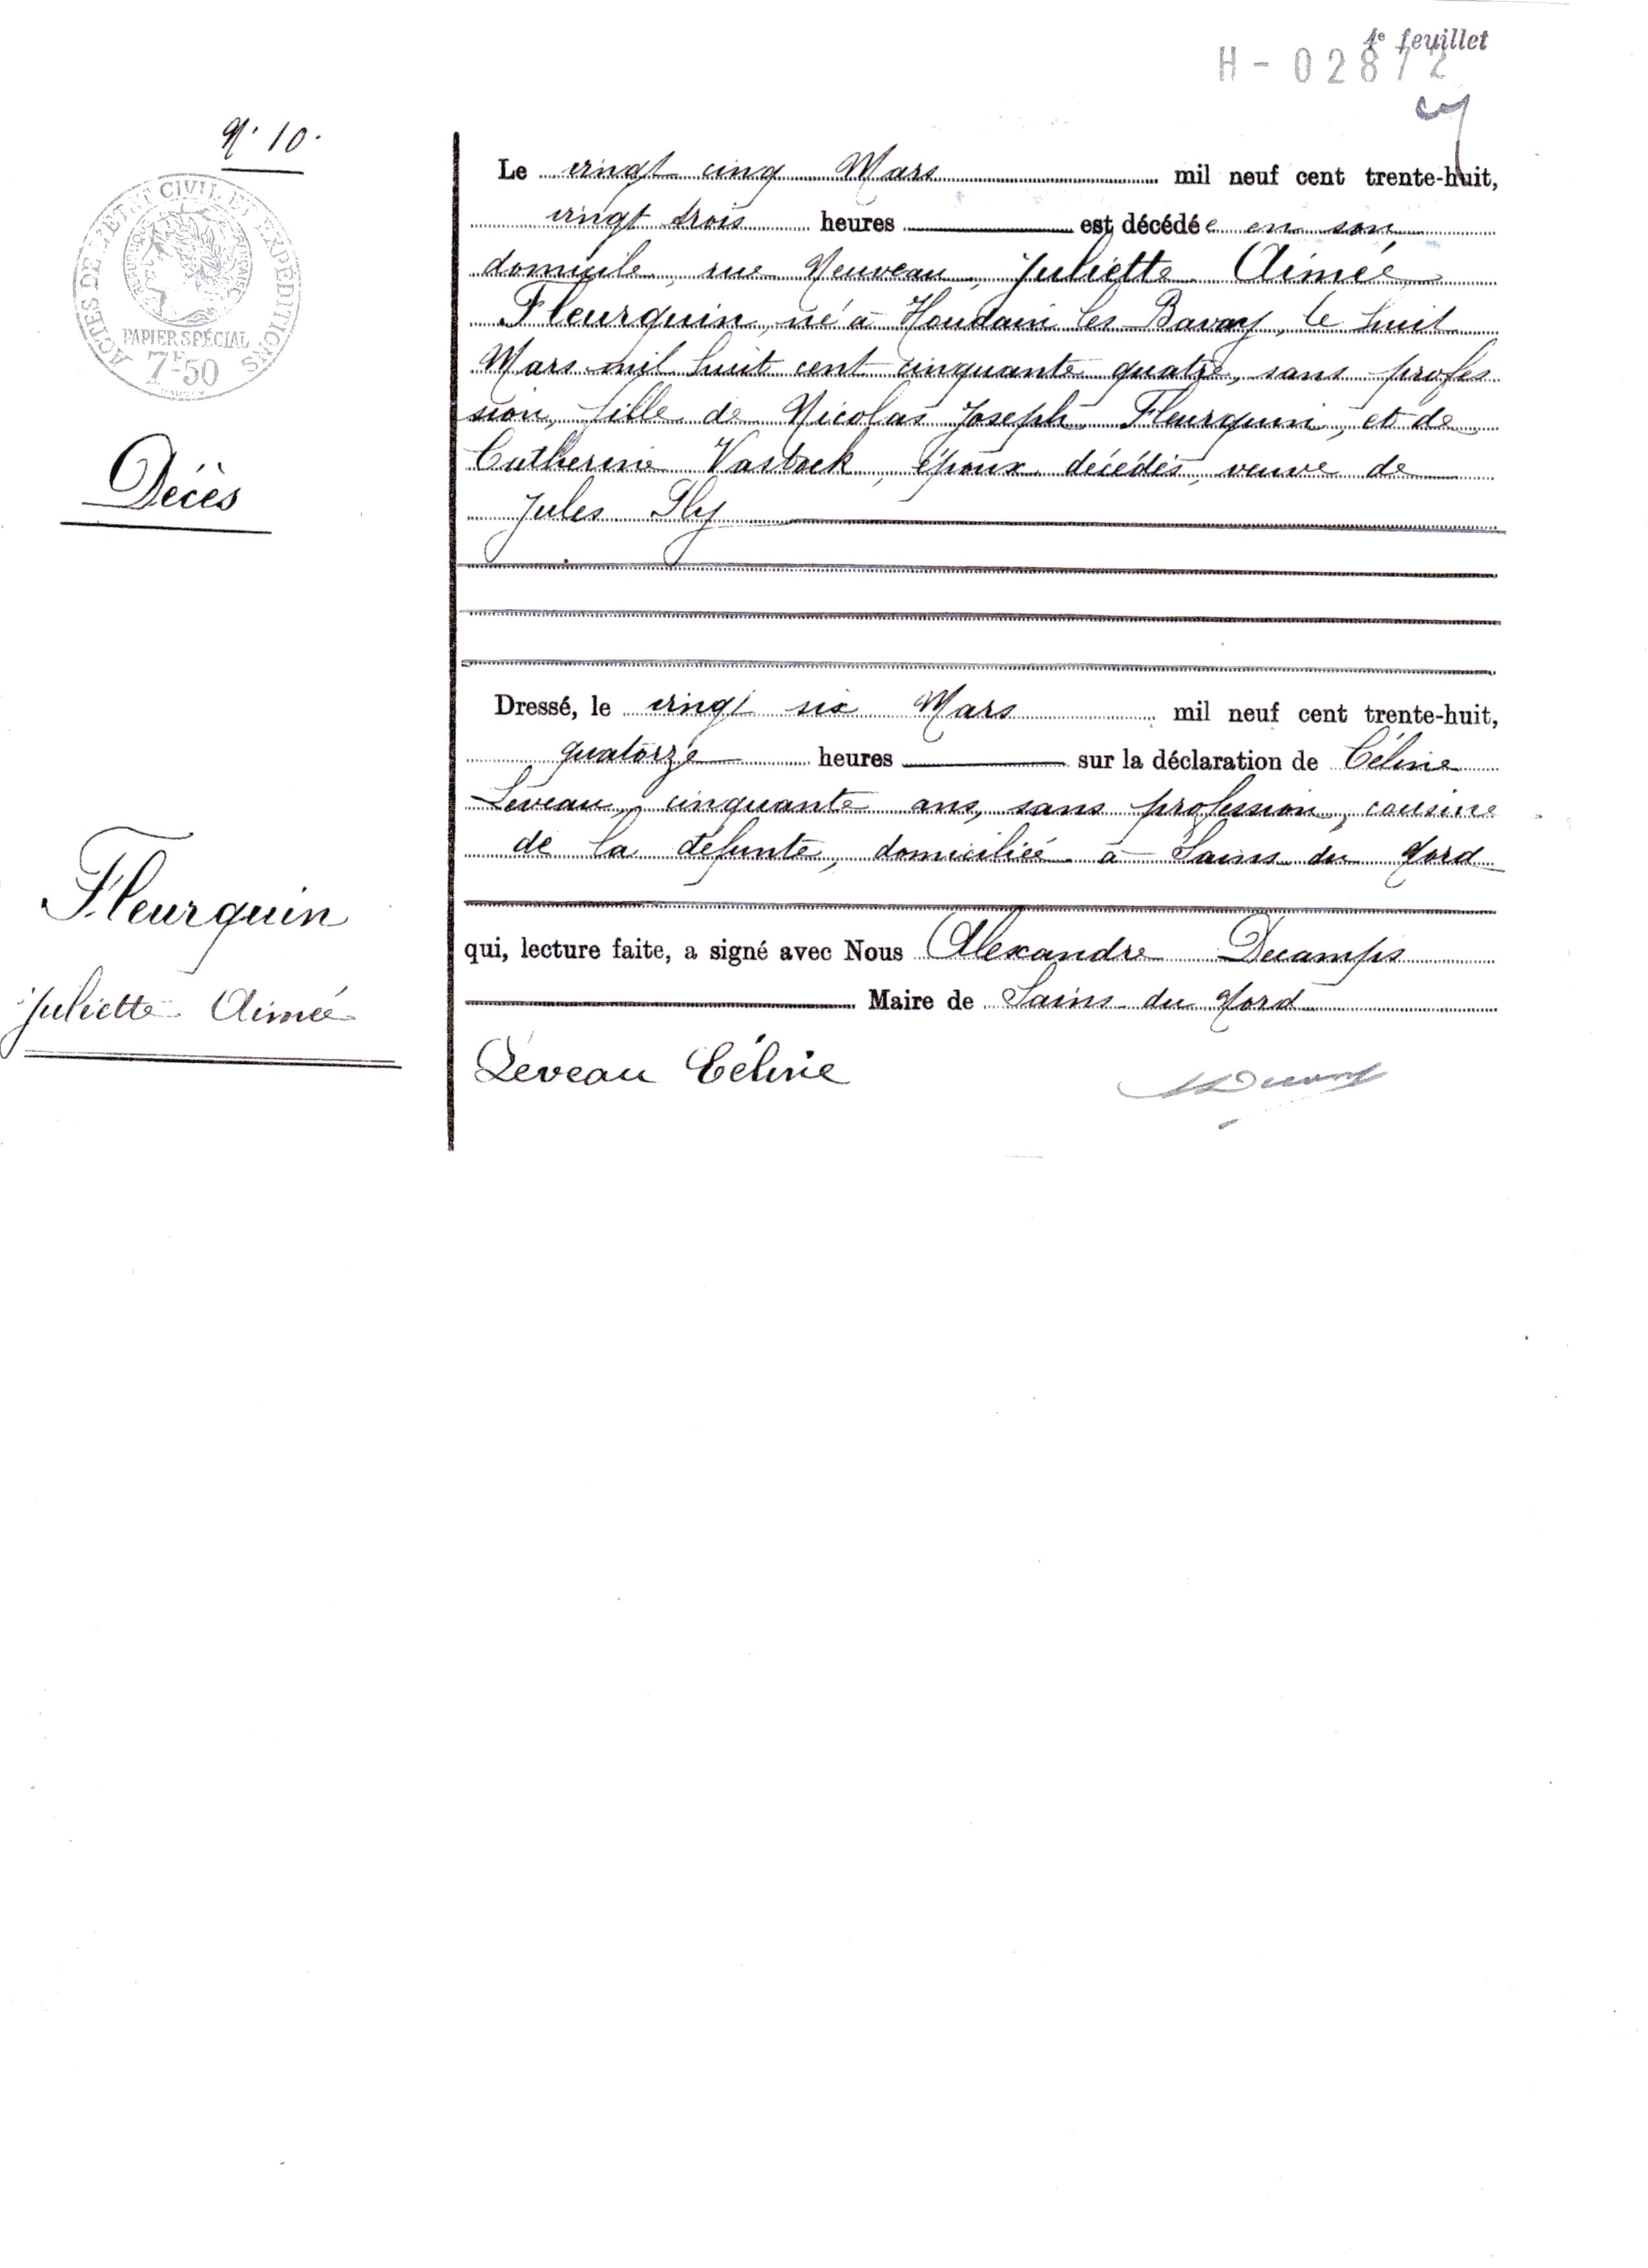 4e feuillet
H-02872
N° 10.
ACTES DE L'ETAT CIVIL ET EXPEDITIONS
REPUBLIQUE FRANÇAISE
PAPIER SPÉCIAL
7F50
Le vingt cinq Mars mil neuf cent trente-huit,
vingt trois heures est décédée en son
domicile, rue Neuveau, Juliette Aimée
Fleurquin, né à Houdain les Bavay, le huit
Mars mil huit cent cinquante quatre, sans profes
sion, fille de Nicolas Joseph Fleurquin, et de
Catherine Vastock, époux décédés, veuve de
Jules Ply
Décès
Dressé, le vingt six Mars mil neuf cent trente-huit,
quatorze heures sur la déclaration de Céline
Leveau, cinquante ans, sans profession, cousine
de la défunte, domiciliée à Sains du Nord
Fleurquin
Juliette Aimée
qui, lecture faite, a signé avec Nous Alexandre Decamps
Maire de Sains du Nord
Leveau Céline